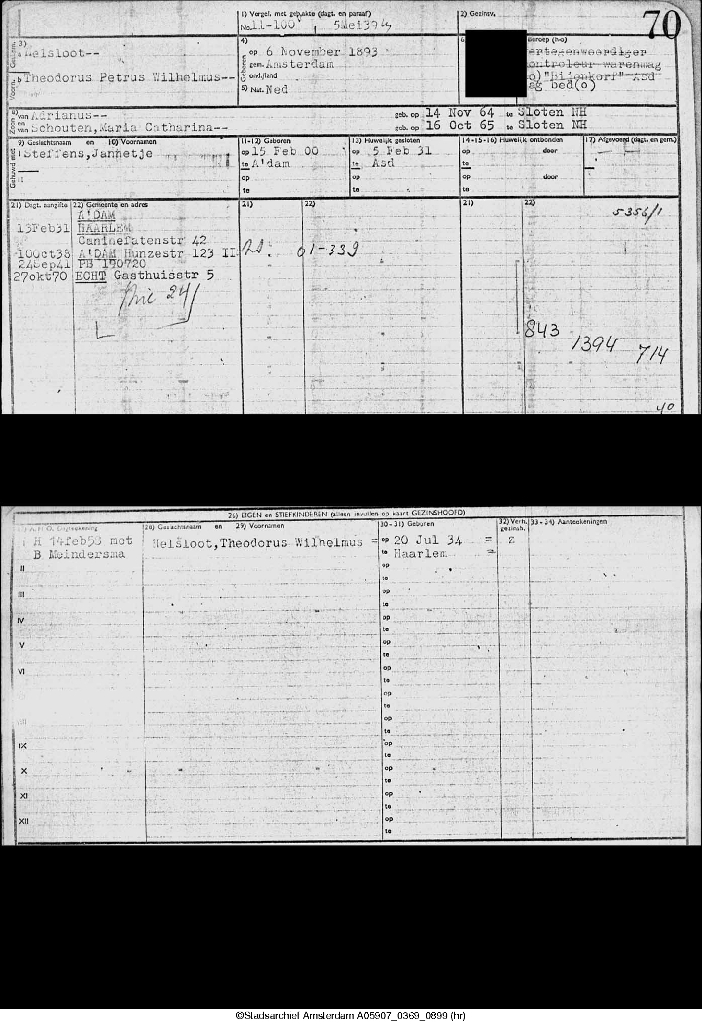 1) Vergel. met geb.akte (dagt. en paraaf)
No. 11-100 5Mei39
2) Gezinsv.
70
3)
Geslsn.
Neisloot--
4)
op 6 November 1893
gem. Amsterdam
and./land
5) Nat. Ned
beroep (h-o)
ertegenwoordiger
ontroleur warenmag
o) "Bijenkorf" Asd
ag bed(o)
Voorn.
Theodorus Petrus Wilhelmus--
Zoon
van Adrianus-- geb. op 14 Nov 64 te Sloten NH
en
van Schouten, Maria Catharina-- geb. op 16 Oct 65 te Sloten NH
9) Geslachtsnaam en 10) Voornamen
11-12) Geboren
13) Huwelijk gesloten
14-15-16) Huwelijk ontbonden
17) Afgevoerd (dagt. en gem.)
Gehuwd met
I Steffens, Jannetje
op 15 Feb 00
te A'dam
op
te
op 5 Feb 31
te Asd
op
te
op door
te
op door
te
21) Dagt. aangifte 22) Gemeente en adres 21) 22) 21) 22)
A'DAM
5356/1
13Feb31 HAARLEM
Caninefatenstr 42
10Oct38 A'DAM Hunzestr 123 II
01-339
24Sep41 PB 190720
27okt70 ECHT Gasthuisstr 5
24
843
1394
714
40
26) EIGEN en STIEFKINDEREN (alleen invullen op kaart GEZINSHOOFD)
28) Geslachtsnaam en 29) Voornamen
30-31) Geboren
32) Verh. gezinsh.
33-34) Aantekeningen
I H 14feb58 met
B Meindersma
Neisloot, Theodorus Wilhelmus =
op 20 Jul 34 =
te Haarlem =
z
II
op
te
III
op
te
IV
op
te
V
op
te
VI
op
te
op
te
VIII
op
te
IX
op
te
X
op
te
XI
op
te
XII
op
te
©Stadsarchief Amsterdam A05907_0369_0899 (hr)